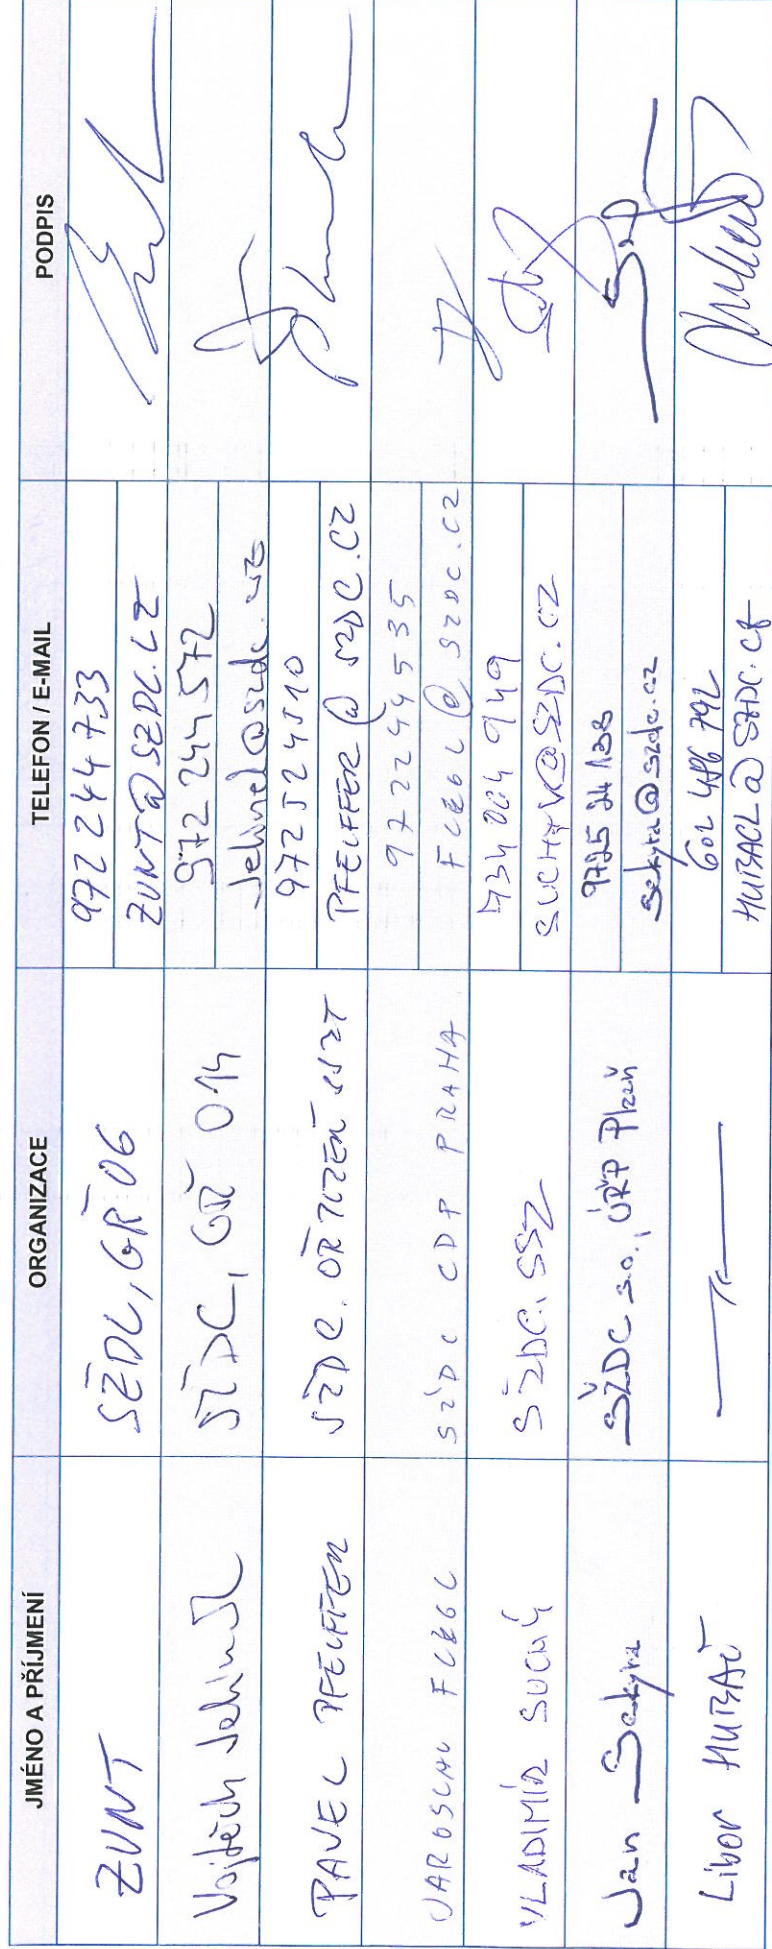 JMÉNO A PŘÍJMENÍ ORGANIZACE TELEFON / E-MAIL PODPIS
ZUNT SŽDC, GŘ 06 972 244 733
ZUNT@SZDC.CZ
Vojtěch SŽDC, GŘ 014 972 244 572
@szdc.cz
PAVEL PFEIFFER SŽDC. OŘ PLZEŇ SSZT 972 524 510
PFEIFFER@SZDC.CZ
JAROSLAV FLEGL SŽDC CDP PRAHA 972244535
FLEGL@SZDC.CZ
VLADIMÍR SUCHÝ SŽDC, SSZ 949
SUCHYV@SZDC.CZ
Jan Sekyra SŽDC s.o., Plzeň 9725 24 138
sekyra@szdc.cz
Libor 602 486 792
@SZDC.CZ